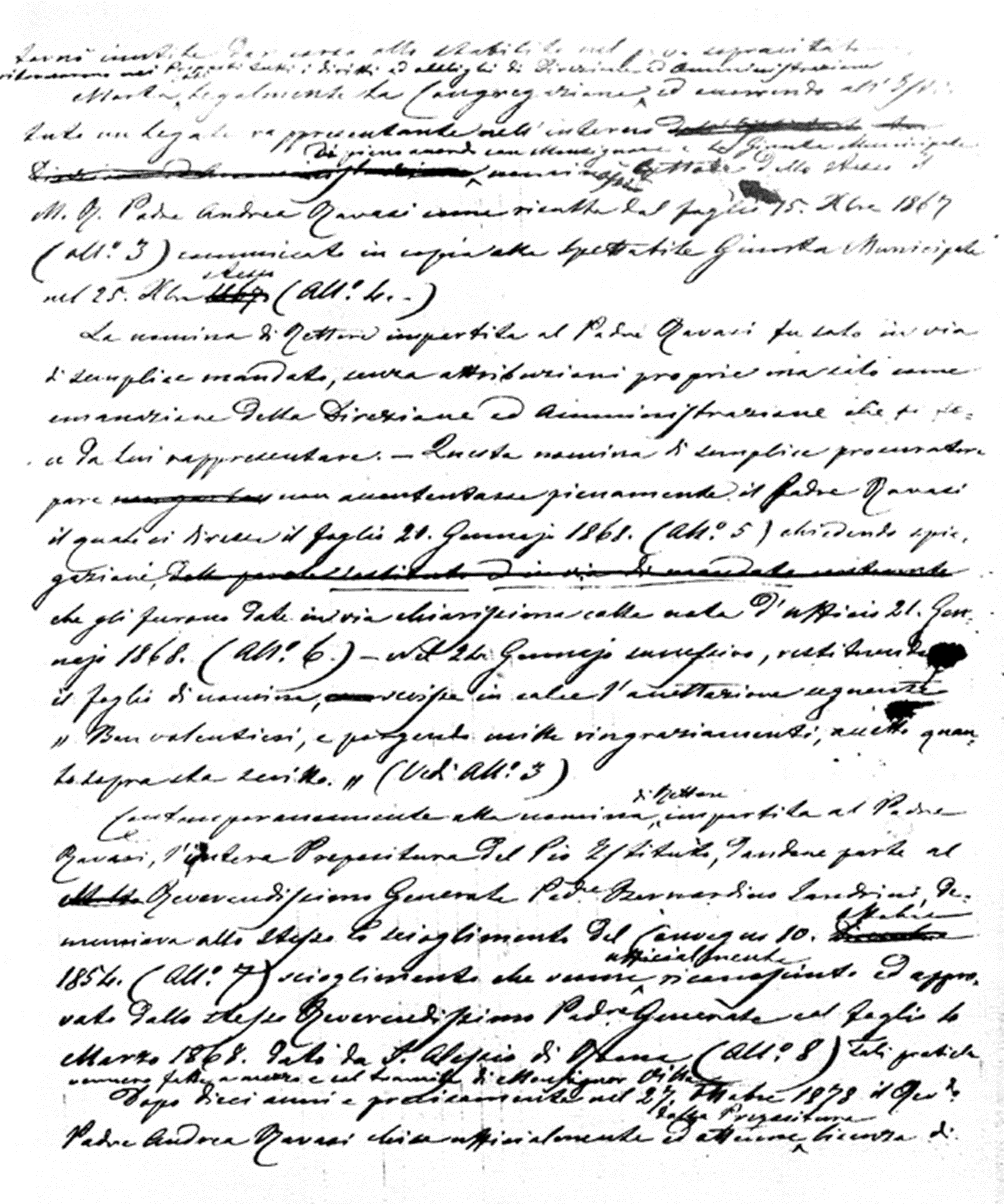 tornò inutile dar corso allo stabilito nel p.vo sopracitato
ritornarono nei Preposti tutti i diritti ed obblighi di Direzione ed Amministrazione
Morta legalmente la Congregazione, ed occorrendo all'Isti-
tuto un legale rappresentante nell'interno
di pieno accordo con Monsignore e la Giunta Municipale
nomina Rettore dello stesso il
M. R. Padre Andrea Ravasi come risulta dal foglio 15. Xbre 1867
(All.° 3) comunicato in copia alla Spettabile Giunta Municipale
stesso
nel 25. Xbre 1867 (All.° 4.-)
La nomina di Rettore impartita al Padre Ravasi fu solo in via
di semplice mandato, senza attribuzioni proprie ma solo come
emanazione della Direzione ed Amministrazione che si fe-
ce da lui rappresentare. — Questa nomina di semplice procuratore
pare non accontentasse pienamente il Padre Ravasi
il quale ci diresse il foglio 21. Gennajo 1868. (All.° 5) chiedendo spie-
gazioni,
che gli furono date in via chiarissima colla nota d'ufficio 21. Gen-
najo 1868. (All.° 6.) — Nel 24. Gennajo successivo, restituendo
il foglio di nomina, scrisse in calce l'accettazione seguente
„ Ben volentieri, e porgendo mille ringraziamenti, accetto quan-
to sopra sta scritto. „ (Vedi All.° 3)
di Rettore
Contemporaneamente alla nomina, impartita al Padre
Ravasi, l'intera Prepositura del Pio Istituto, dandone parte al
Reverendissimo Generale Padre Bernardino Sandrini, de-
nunciava allo stesso lo scioglimento del Convegno 10. Ottobre
ufficialmente
1854. (All.° 7) scioglimento che venne riconosciuto ed appro-
vato dallo stesso Reverendissimo Padre Generale col foglio 10
Marzo 1868. dato da S. Alessio di Roma (All.° 8) tali pratiche
vennero fatte a mezzo e col tramite di Monsignor
Dopo dieci anni e precisamente nel 27. Ottobre 1878 il Rev.do
dalla Prepositura
Padre Andrea Ravasi chiese ufficialmente ed ottenne licenza di